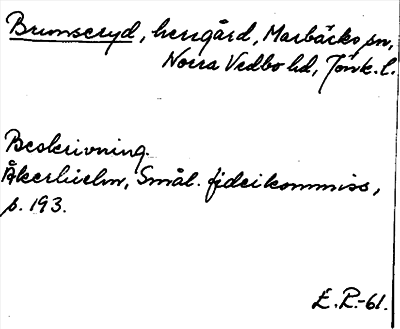 Brunseryd, herrgård, Marbäcks sn,
Norra Vedbo hd, Jönk. l.
Beskrivning.
Åkerhielm, Smål. fideikommiss,
s. 193.
E.P.-61.